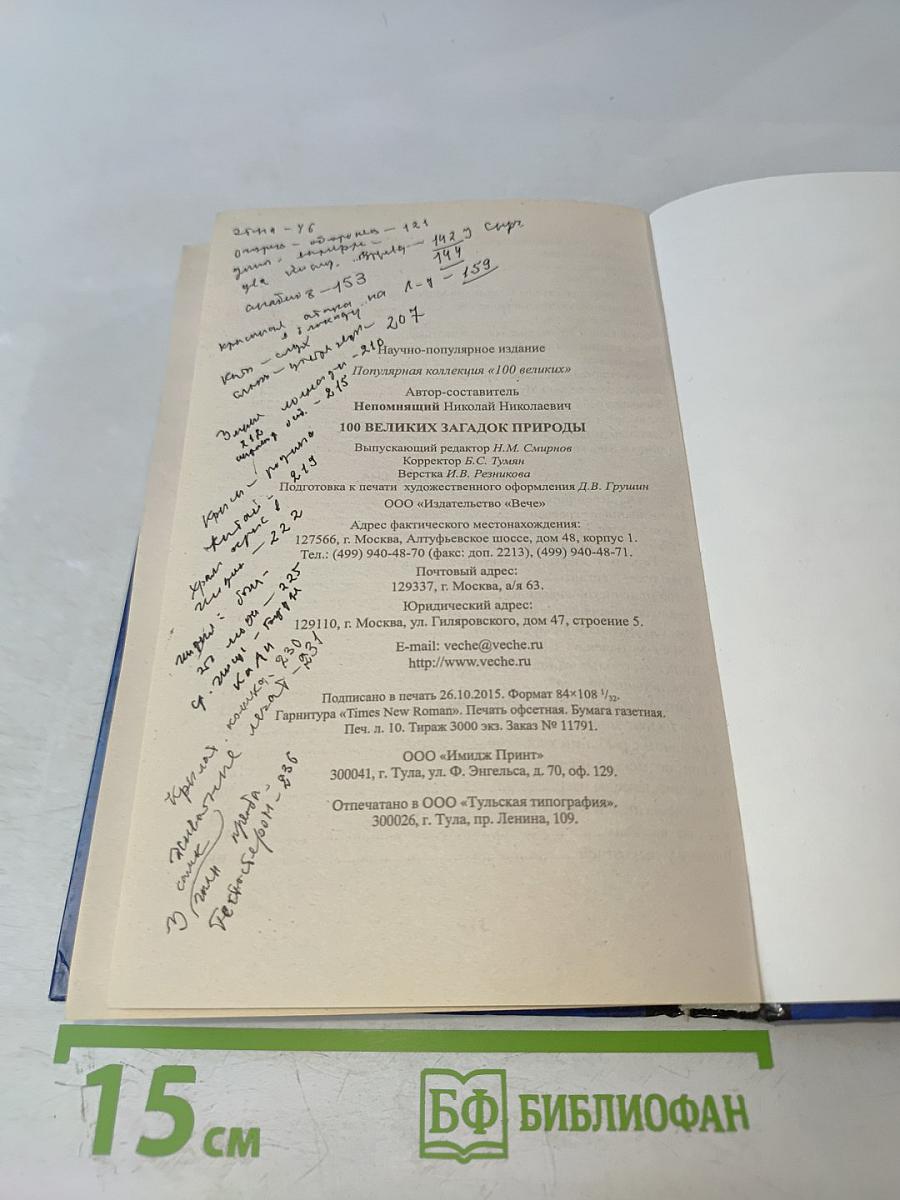 этна - 46
121
142
144
анабиоз - 153
на Л-д - 159
207
210
212
215
Крысы - родина
Китай - 219
храм крыс в
Индии - 222
225
КАЛИ
Крылат. кошка - 230
животные лечат - 231
тестостерон - 236
Научно-популярное издание
Популярная коллекция «100 великих»
Автор-составитель
Непомнящий Николай Николаевич
100 ВЕЛИКИХ ЗАГАДОК ПРИРОДЫ
Выпускающий редактор Н.М. Смирнов
Корректор Б.С. Тумян
Верстка И.В. Резникова
Подготовка к печати художественного оформления Д.В. Грушин
ООО «Издательство «Вече»
Адрес фактического местонахождения:
127566, г. Москва, Алтуфьевское шоссе, дом 48, корпус 1.
Тел.: (499) 940-48-70 (факс: доп. 2213), (499) 940-48-71.
Почтовый адрес:
129337, г. Москва, а/я 63.
Юридический адрес:
129110, г. Москва, ул. Гиляровского, дом 47, строение 5.
E-mail: veche@veche.ru
http://www.veche.ru
Подписано в печать 26.10.2015. Формат 84×108 1/32.
Гарнитура «Times New Roman». Печать офсетная. Бумага газетная.
Печ. л. 10. Тираж 3000 экз. Заказ № 11791.
ООО «Имидж Принт»
300041, г. Тула, ул. Ф. Энгельса, д. 70, оф. 129.
Отпечатано в ООО «Тульская типография».
300026, г. Тула, пр. Ленина, 109.
15 см
БФ БИБЛИОФАН